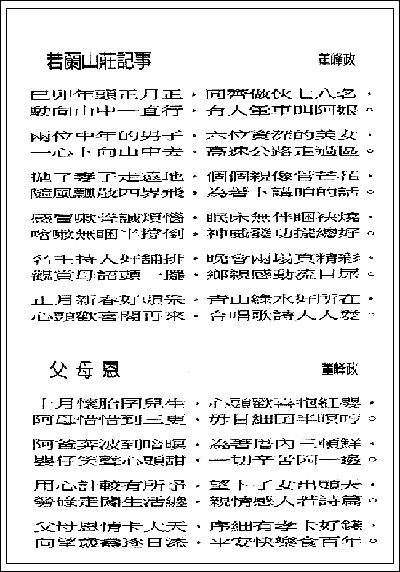 若蘭山莊記事 董峰政
己卯年頭正月正，同齊做伙七八名，
動向山中一直行，有人坐車叫阿娘。
兩位中年的男子，六位資深的美女，
一心卜向山中去，高速公路走過區。
拋了妻子走遠地，個個親像
隨風飄散四界飛，為著卜講咱的話。
感冒嗽 誠煩惱，眠床無伴睏袂燒，
哈啾無睏半撐倒，神威發功攏總好。
名牛持人好舖排，晚會兩場真精彩，
觀賞母語頭一擺，鄉親感動流目屎。
正月新春好頭采，青山綠水好所在，
心頭歡喜閣再來，合唱歌詩人人愛。
父母恩 董峰政
十月懷胎囝兒生，心頭歡喜抱紅嬰，
阿母惜惜到三更，毋甘細囝半暝
阿爸奔波到暗暝，為著厝內三頓鮮，
嬰仔笑聲心頭甜，一切辛苦阿一邊。
用心計較有所望，望卜子女出頭天，
勞碌走闖生活纏，親情感人若詩篇。
父母恩情卡大天，序細有孝卡好錢，
向望 壽逐日添，平安快樂食百年。